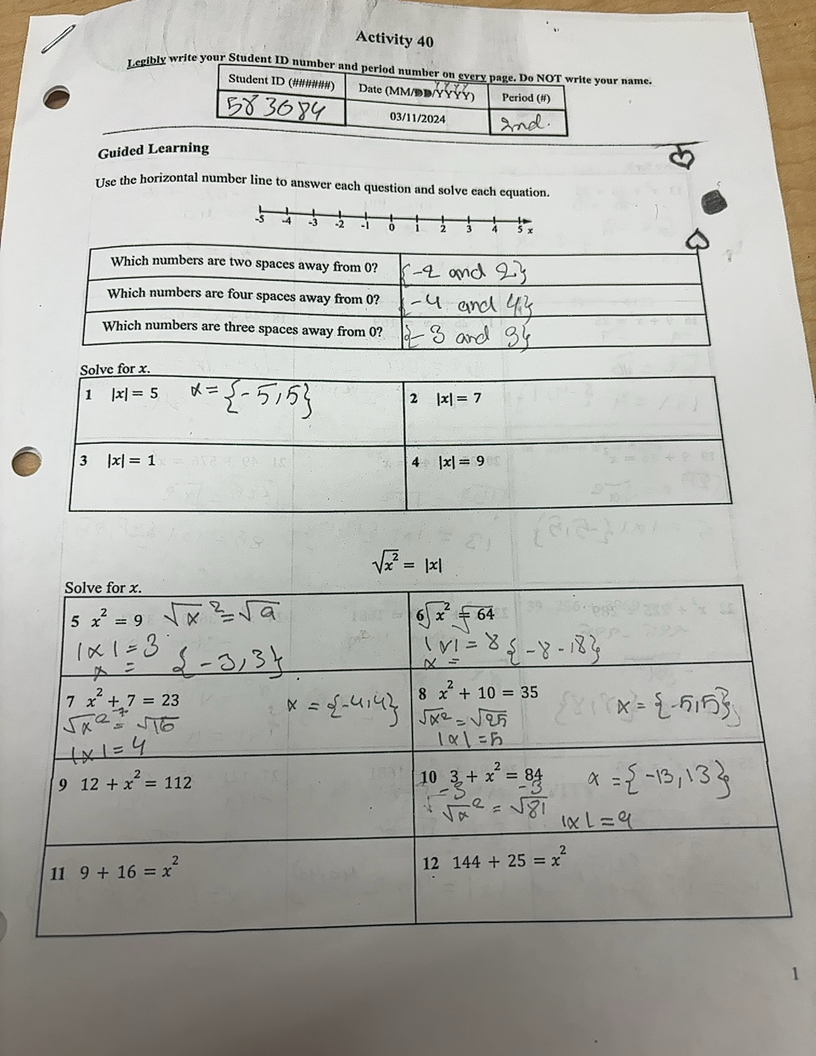 Activity 40
Legibly write your Student ID number and period number on every page. Do NOT write your name.
Student ID (######) Date (MM/DD/YYYY) Period (#)
583084 03/11/2024 2nd.
Guided Learning
Use the horizontal number line to answer each question and solve each equation.
-5 -4 -3 -2 -1 0 1 2 3 4 5 x
Which numbers are two spaces away from 0? {-2 and 2}
Which numbers are four spaces away from 0? {-4 and 4}
Which numbers are three spaces away from 0? {-3 and 3}
Solve for x.
1 |x| = 5 x = {-5,5}
2 |x| = 7
3 |x| = 1
4 |x| = 9
√x² = |x|
Solve for x.
5 x² = 9 √x² = √9
|x| = 3
x = {-3,3}
6 √x² = √64
|x| = 8 {-8-,8}
x =
7 x² + 7 = 23 x = {-4,4}
√x² = √16
|x| = 4
8 x² + 10 = 35 x = {-5,5}
√x² = √25
|x| = 5
9 12 + x² = 112
10 3 + x² = 84 x = {-13,13}
-3 -3
√x² = √81 |x| = 9
11 9 + 16 = x²
12 144 + 25 = x²
1